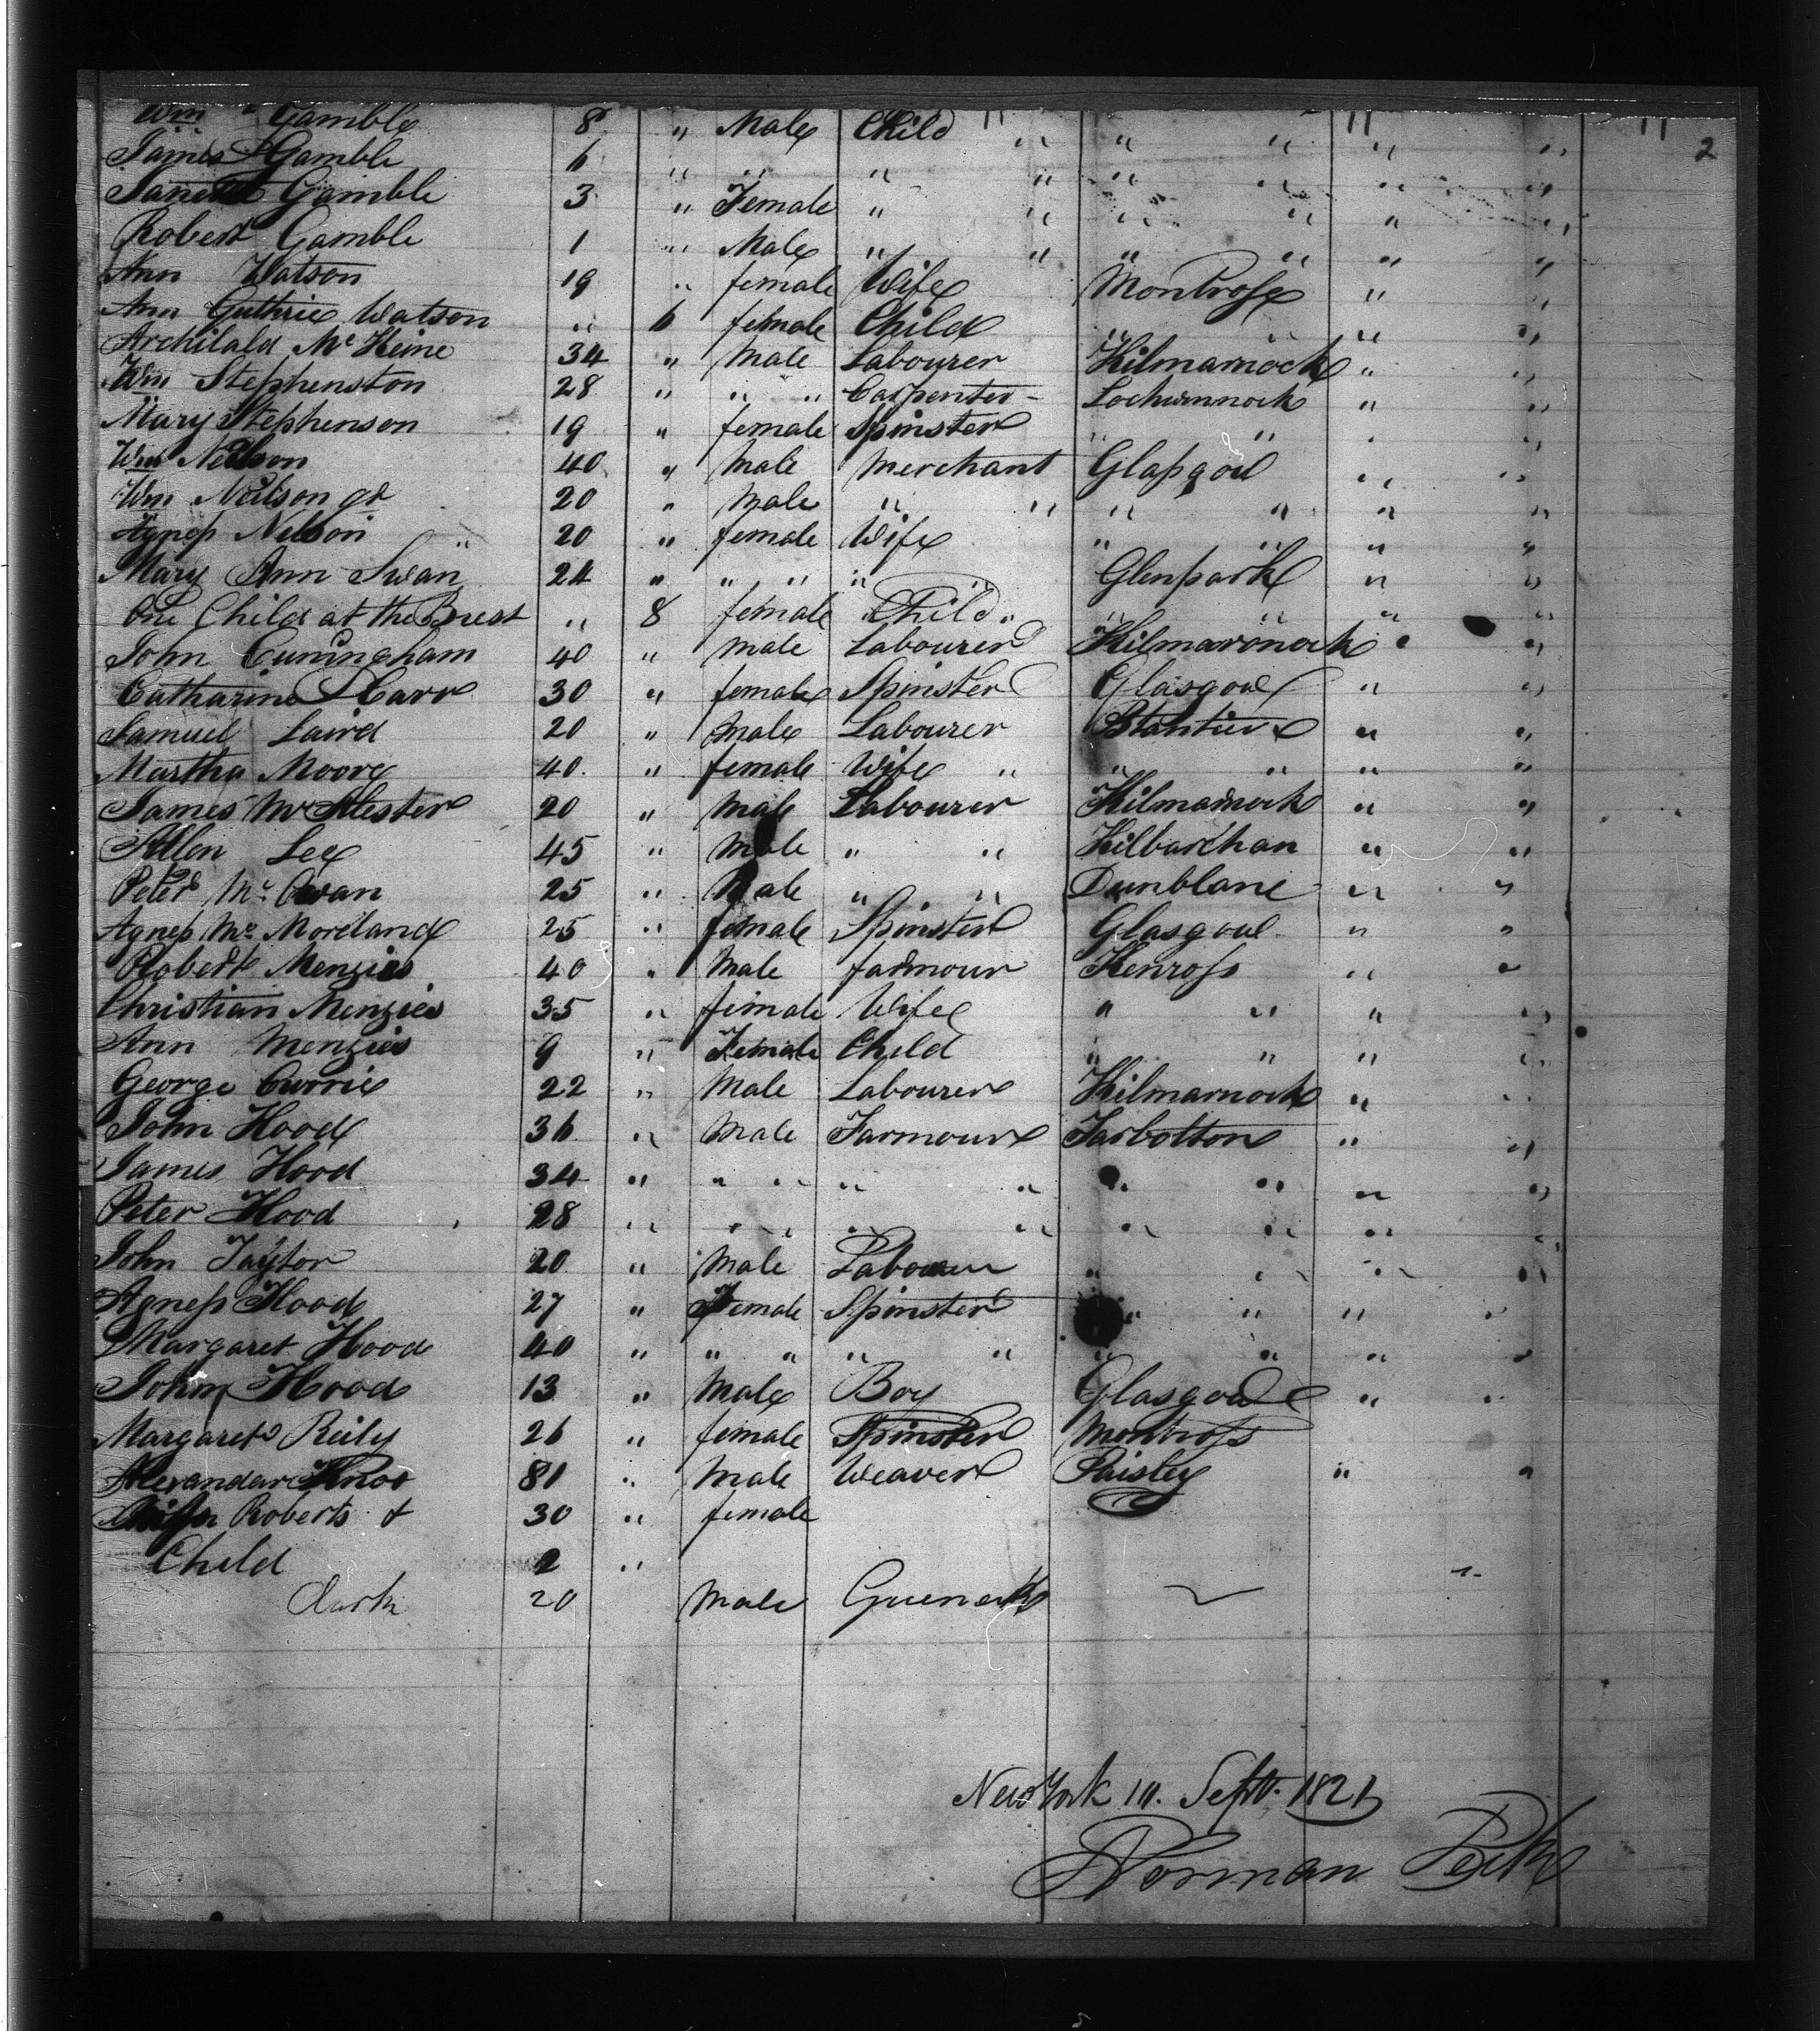 2
Wm Gamble 8 " Male Child " " " " "
James Gamble 6 " " " " " " " " "
Janett Gamble 3 " Female " " " " " "
Robert Gamble 1 " Male " " " " " "
Ann Watson 19 " female Wife Montrose " "
Ann Guthrie Watson " 6 female Child " " "
Archilald Mc 34 " Male Labourer Kilmarnock " "
Wm Stephenston 28 " " " Carpenter - Lochwinnock " "
Mary Stephenson 19 " female Spinster " " " "
Wm Neilson 40 " Male Merchant Glasgow " "
Wm Neilson 20 " Male " " " " " "
Agness Nelson " 20 " female Wife " " " "
Mary Ann Swan 24 " " " " " Glenpark " "
One Child at the Brest " 8 female Child " " " " "
John Cuningham 40 " male Labourer Kilmarnock " "
Catharine Carr 30 " female Spinster Glasgow " "
Samuel Laird 20 " Male Labourer " "
Martha Moore 40 " female Wife " " " " "
James 20 " Male Labourer Kilmarnock " "
Allen Lee 45 " Male " " Kilbarchan " "
Peter Mc Owan 25 " Male " " Dunblane " "
Agness Mc Moreland 25 " female Spinster Glasgow " "
Robert Menzies 40 " Male farmour Kenross " "
Christian Menzies 35 " female Wife " " " "
Ann Menzies 9 " Female Child " " " "
George Currie 22 " Male Labourer Kilmarnock " "
John Hood 36 " Male Farmour Tarbolton " "
James Hood 34 " " " " " " " " "
Peter Hood 28 " " " " " " " " "
John Taylor 20 " Male Labourer " " " "
Agness Hood 27 " Female Spinster " " " "
Margaret Hood 40 " " " " " " " " "
John Hood 13 " Male Boy Glasgow " "
Margaret Reily 26 " female Spinster Montross
Alexandar Knox 81 " Male Weaver Paisley " "
Roberts & 30 " female
Child 2 "
Clark 20 Male Greenock
New York 10. Sept. 1821
Norman Peck